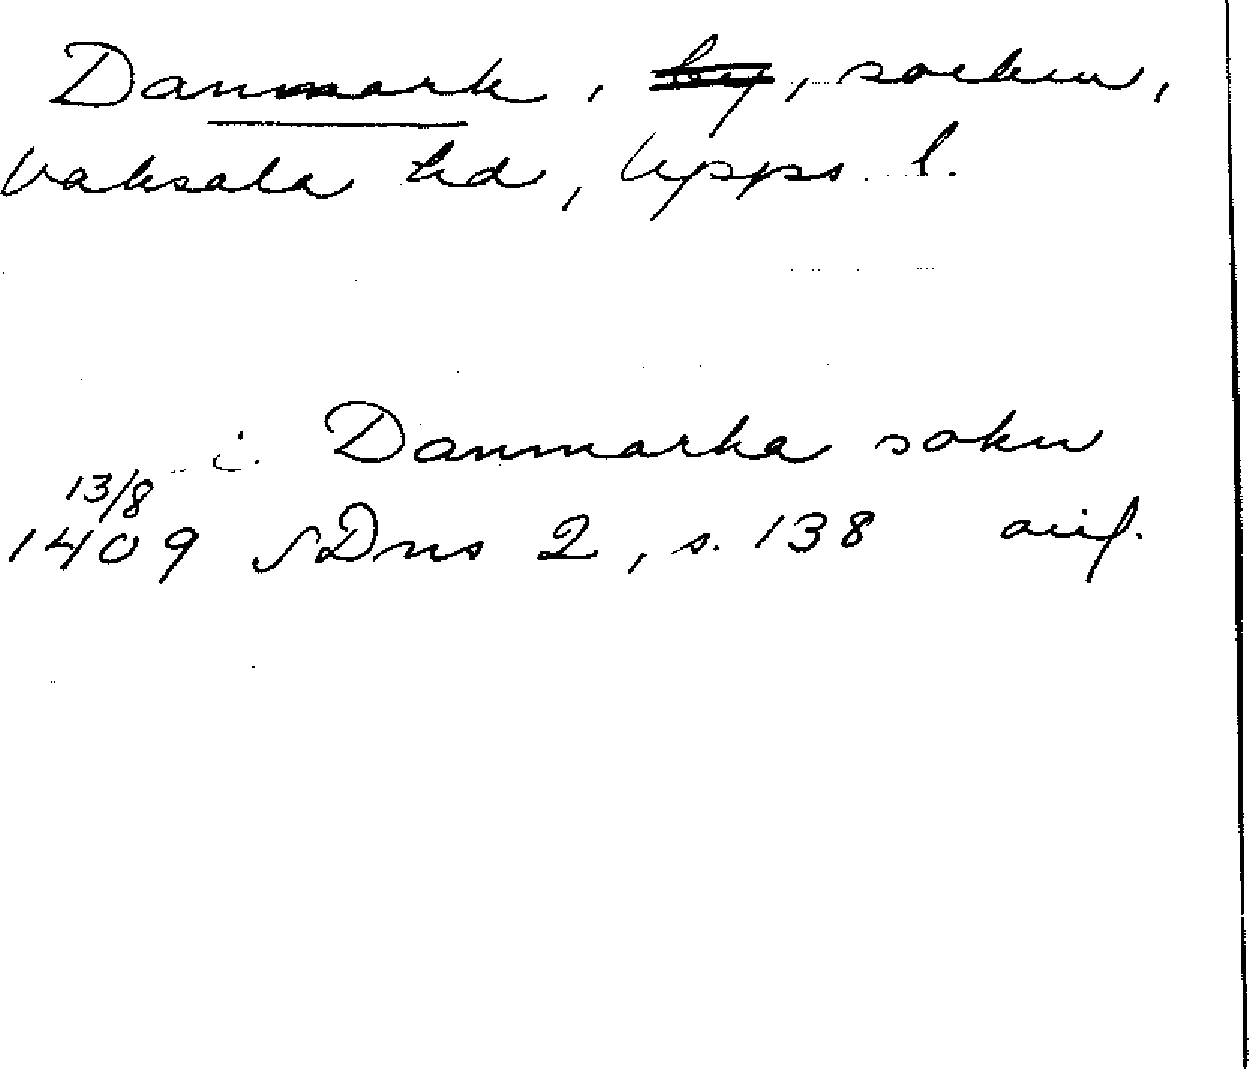 Danmark, by, socken,
Vaksala hd, Upps. l.
i Danmarka sokn
13/8
1409 SDns 2, s. 138 avf.